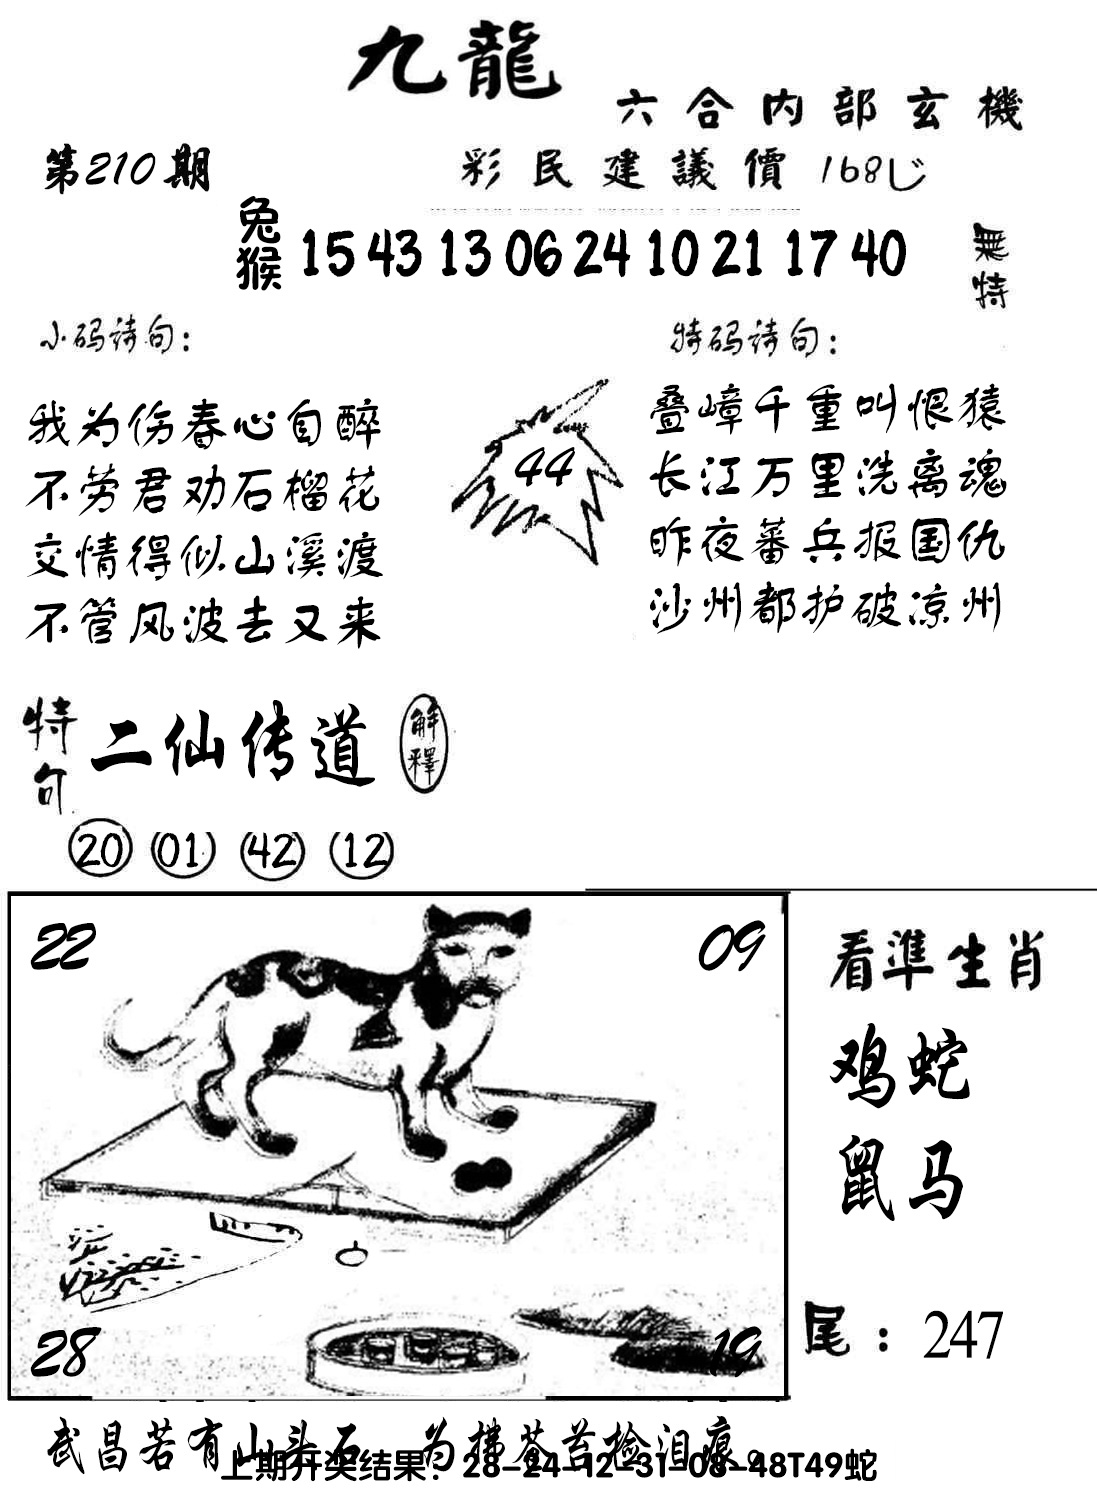 九龍
六合内部玄機
第210期
彩民建議價 168
兔猴 15 43 13 06 24 10 21 17 40 無特
小码诗句：
特码诗句：
我为伤春心自醉
不劳君劝石榴花
交情得似山溪渡
不管风波去又来
44
叠嶂千重叫恨猿
长江万里洗离魂
昨夜蕃兵报国仇
沙州都护破凉州
特句 二仙传道 解釋
20 01 42 12
22 09
28 19
看準生肖
鸡蛇
鼠马
尾：247
武昌若有山头石 为拂苍苔捡泪痕。
上期开奖结果：28-24-12-31-08-48T49蛇